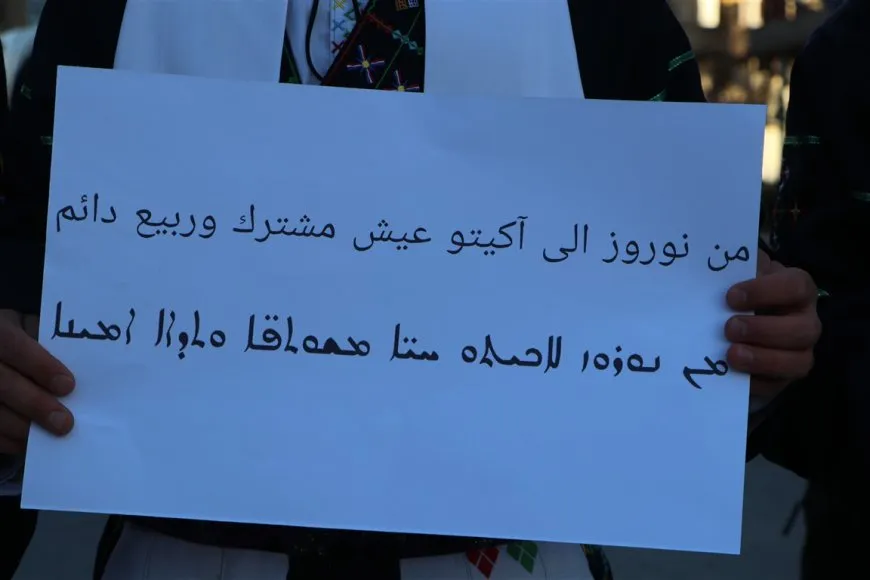 من نوروز الى آكيتو عيش مشترك وربيع دائم
ܡܢ ܢܘܪܘܙ ܠܐܟܝܬܘ ܚܝ̈ܐ ܡܫܘܬܦ̈ܐ ܘܬܕܐܐ ܐܡܝܢܐ